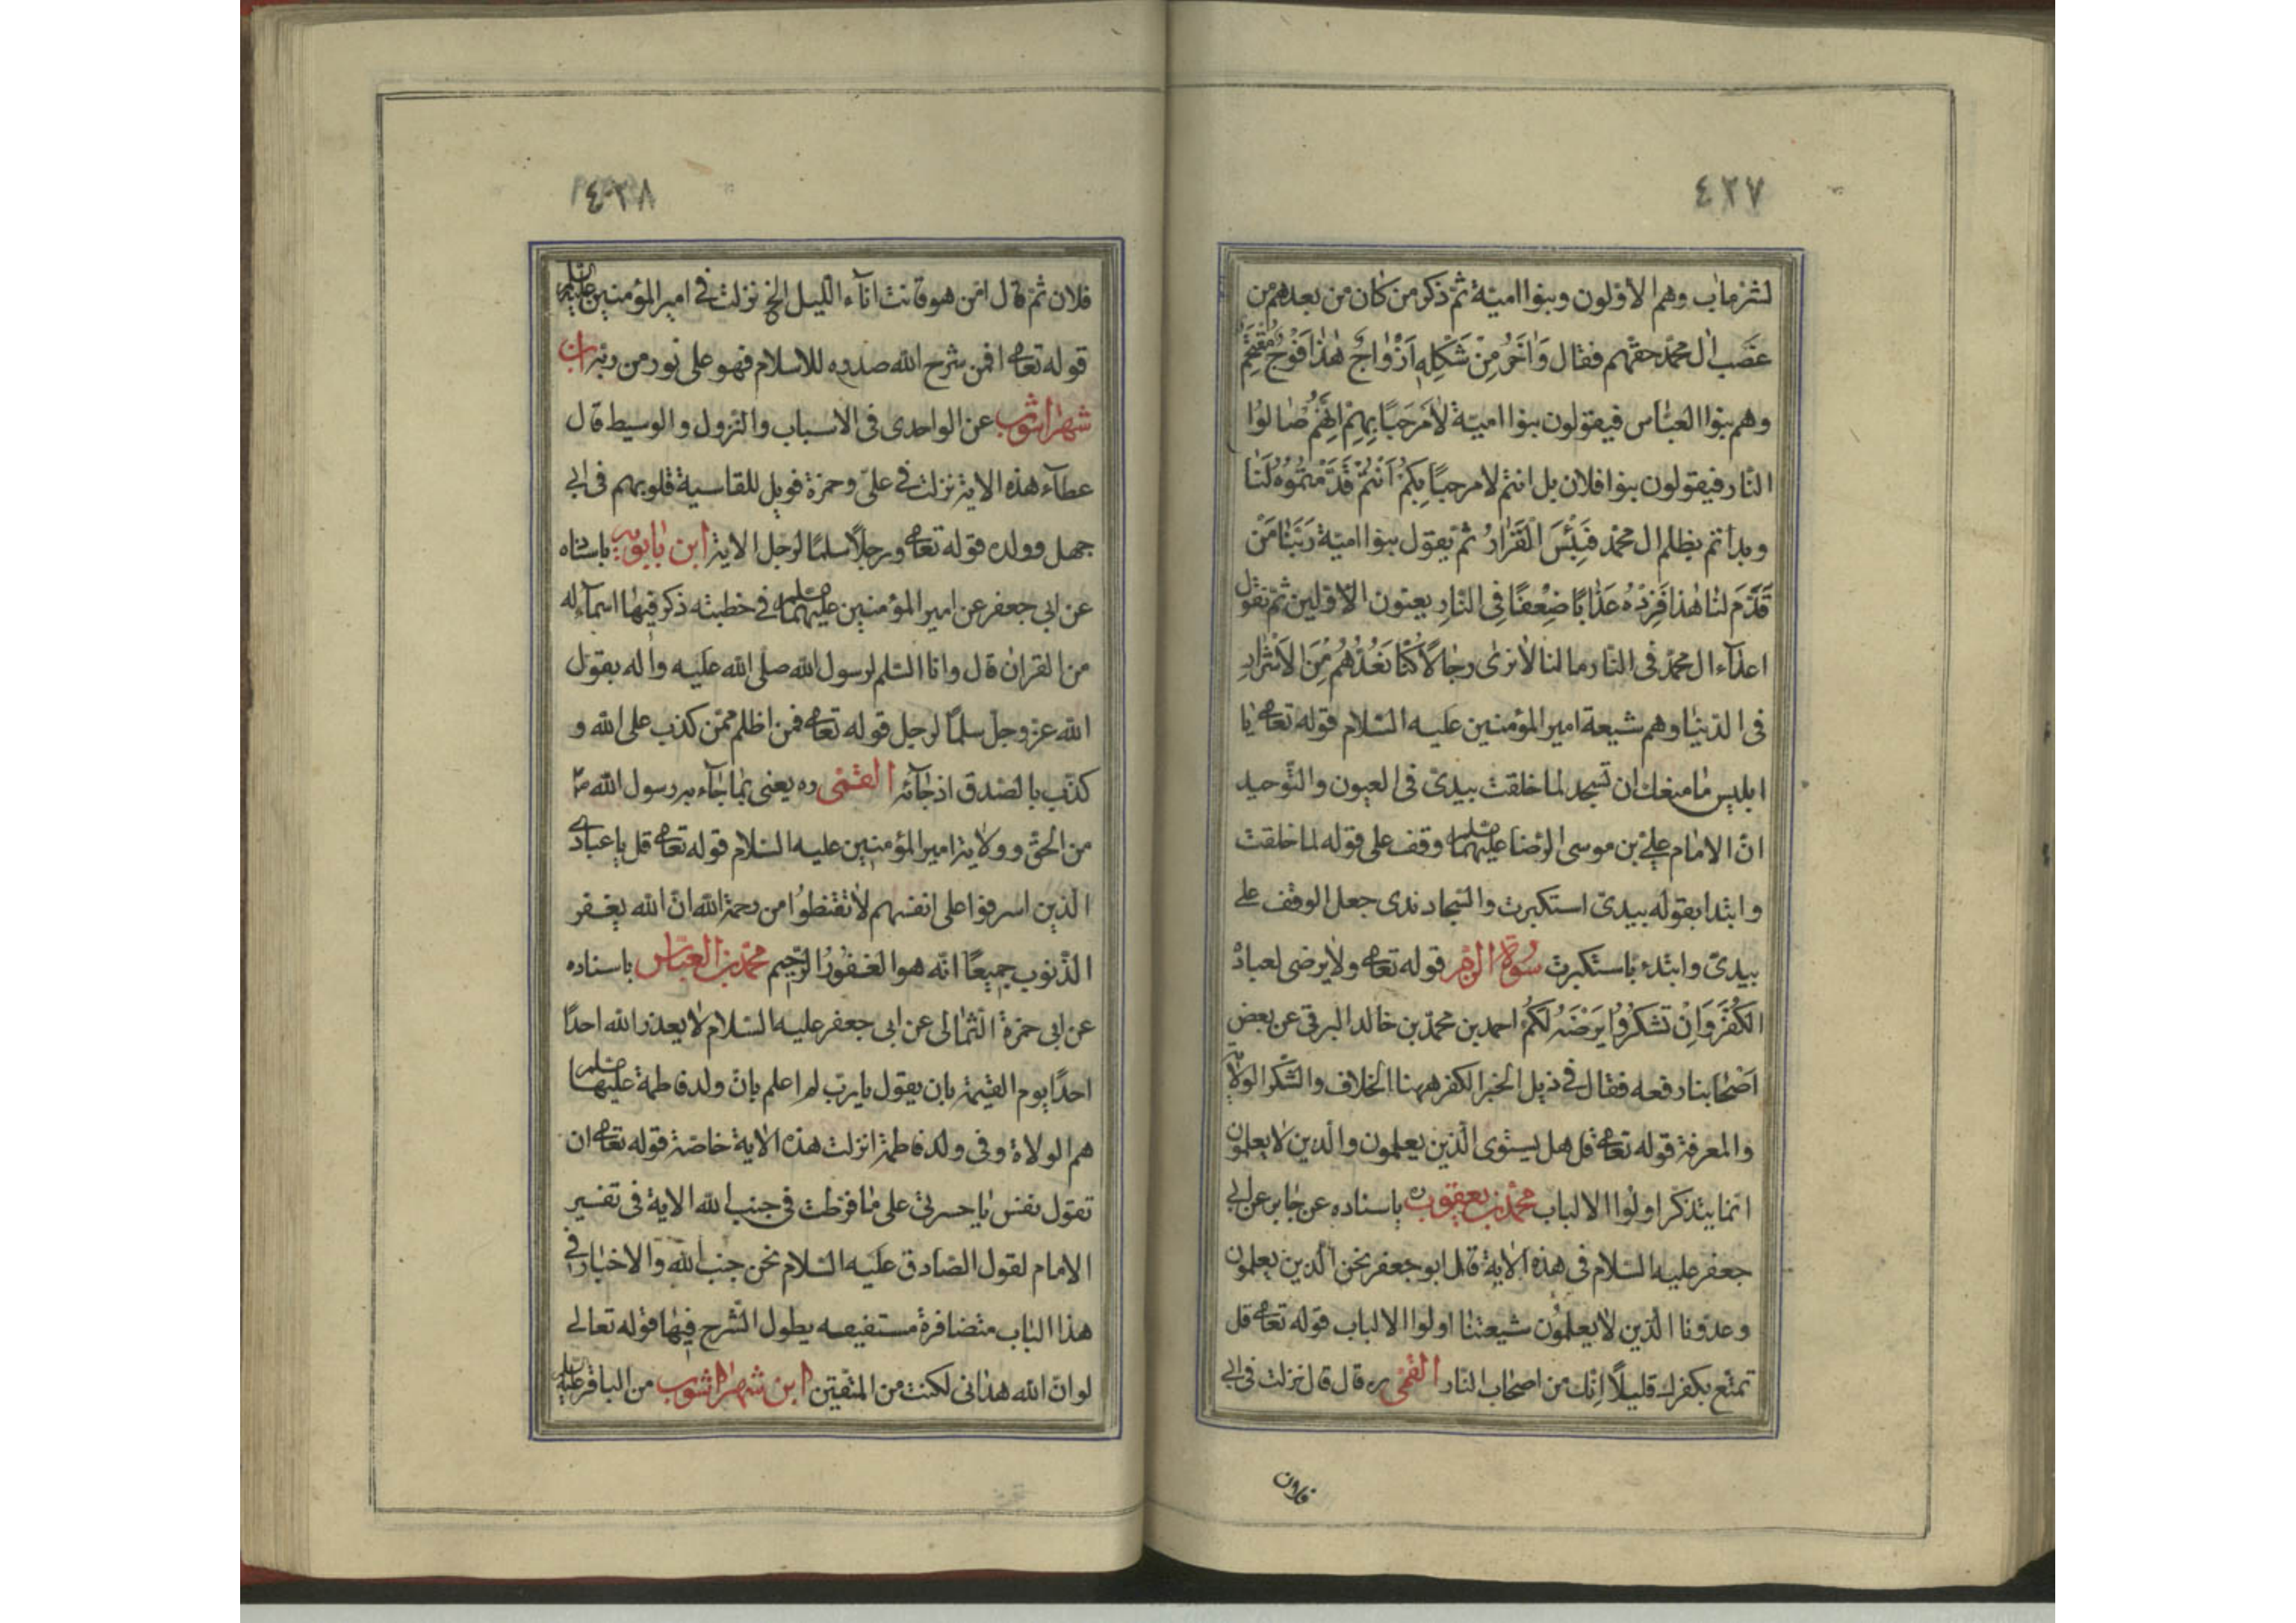 ٤٢٧
لشر ماب وهم الاولون وبنوا امية ثم ذكر من كان من بعدهم من
غصب ال محمد حقهم فقال وَاٰخَرُ مِنْ شَكْلِهٖ اَزْوٰاجٌ هٰذٰا فَوْجٌ مُقْتَحِمٌ
وهم بنوا العباس فيقولون بنوا امية لاٰ مَرْحَبًا بِهِمْ اِنَّهُمْ صٰالُوا
النار فيقولون بنوا فلان بل انتم لا مرحبًا بِكُمْ اَنْتُمْ قَدَّمْتُمُوهُ لَنٰا
وبداتم بظلم ال محمد فَبِئْسَ الْقَرٰارُ ثم يقول بنوا امية رَبَّنٰا مَنْ
قَدَّمَ لَنٰا هٰذٰا فَزِدْهُ عَذٰابًا ضِعْفًا فِى النّٰارِ يعنون الاولين ثم تقول
اعدٓاء ال محمد فى النار ما لنا لاٰ نرٰى رجٰالاً كُنّٰا نَعُدُّهُمْ مِنَ الْاَشْرٰارِ
فى الدنيٰا وهم شيعة امير المؤمنين عليه السلام قوله تعالى يٰا
ابليس مٰا منعك ان تسجد لما خلقت بيدىّ فى العيون والتوحيد
انّ الامام على بن موسى الرضا عليهما السلم وقف على قوله لما خلقت
وابتدا بقوله بيدىّ استكبرت والسجاوندى جعل الوقف على
بيدىّ وابتدء باستكبرت سورة الزمر قوله تعالى ولا يرضى لعباده
الْكُفْرَ وَاِنْ تَشْكُرُوا يَرْضَهُ لَكُمْ احمد بن محمد بن خالد البرقى عن بعض
اصحٰابنا رفعه فقال فى ذيل الخبر الكفر ههنا الخلاف والشكر الولاية
والمعرفة قوله تعالى قل هل يستوى الذين يعلمون والذين لا يعلمون
انما يتذكر اولوا الالباب محمد بن يعقوب ره باسناده عن جٰابر عن ابى
جعفر عليه السلام فى هذه الاٰية قال ابو جعفر نحن الذين يعلمون
وعدونا الذين لاٰ يعلمون شيعتنٰا اولوا الالباب قوله تعالى قل
تمتع بكفرك قليلاً اِنّك من اصحٰاب النار القمى ره قال قال نزلت فى ابى
فلان
٤٢٨
فلان ثم قال امن هو قانت انآء الليل الخ نزلت فى امير المؤمنين عليه السلم
قوله تعالى افمن شرح الله صدره للاسلام فهو على نور من ربه ابن
شهراشوب عن الواحدى فى الاسباب والنزول والوسيط قال
عطآء هذه الاية نزلت فى علىّ وحمزة فويل للقاسية قلوبهم فى ابى
جهل وولده قوله تعالى ورجلاً سلمًا لرجل الاية ابن بابويه باسناده
عن ابى جعفر عن امير المؤمنين عليهما السلم فى خطبته ذكر فيهٰا اسمآء له
من القران قال وانا السلم لرسول الله صلى الله عليه واله يقول
الله عز وجل سلمًا لرجل قوله تعالى فمن اظلم ممن كذب على الله و
كذّب بالصدق اذ جٰآئه القمى ره يعنى بمٰا جٰآء به رسول الله ص
من الحق وولاٰية امير المؤمنين عليه السلام قوله تعالى قل يا عبادى
الذين اسرفوا على انفسهم لاٰ تقنطوُا من رحمة الله ان الله يغفر
الذنوب جميعًا انه هو الغفور الرحيم محمد بن العباس باسناده
عن ابى حمزة الثمٰالى عن ابى جعفر عليه السلام لاٰ يعذر الله احدًا
احدًا يوم القيمة بان يقول يا رب لم اعلم بان ولد فاطمة عليها السلم
هم الولاة وفى ولد فاطمة انزلت هذه الاٰية خاصة قوله تعالى ان
تقول نفس يٰا حسرتى على مٰا فرطت فى جنب الله الاية فى تفسير
الامام لقول الصادق عليه السلام نحن جنب الله والاخبٰار فى
هذا الباب متضافرة مستفيضه يطول الشرح فيهٰا قوله تعالى
لو ان الله هدانى لكنت من المتقين ابن شهراشوب من الباقر عليه السلم